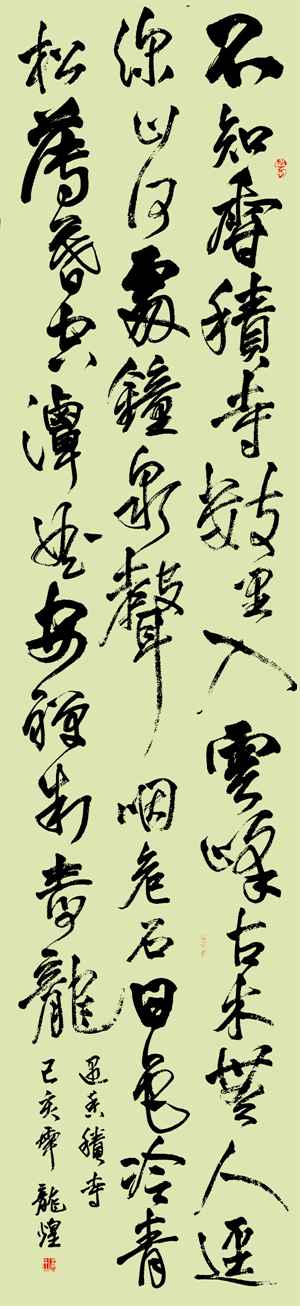 不知香積寺數里入雲峰古木無人逕
深山何處鐘泉聲咽危石日色冷青
松薄暮空潭曲安禪制毒龍
過香積寺
己亥 龍煌